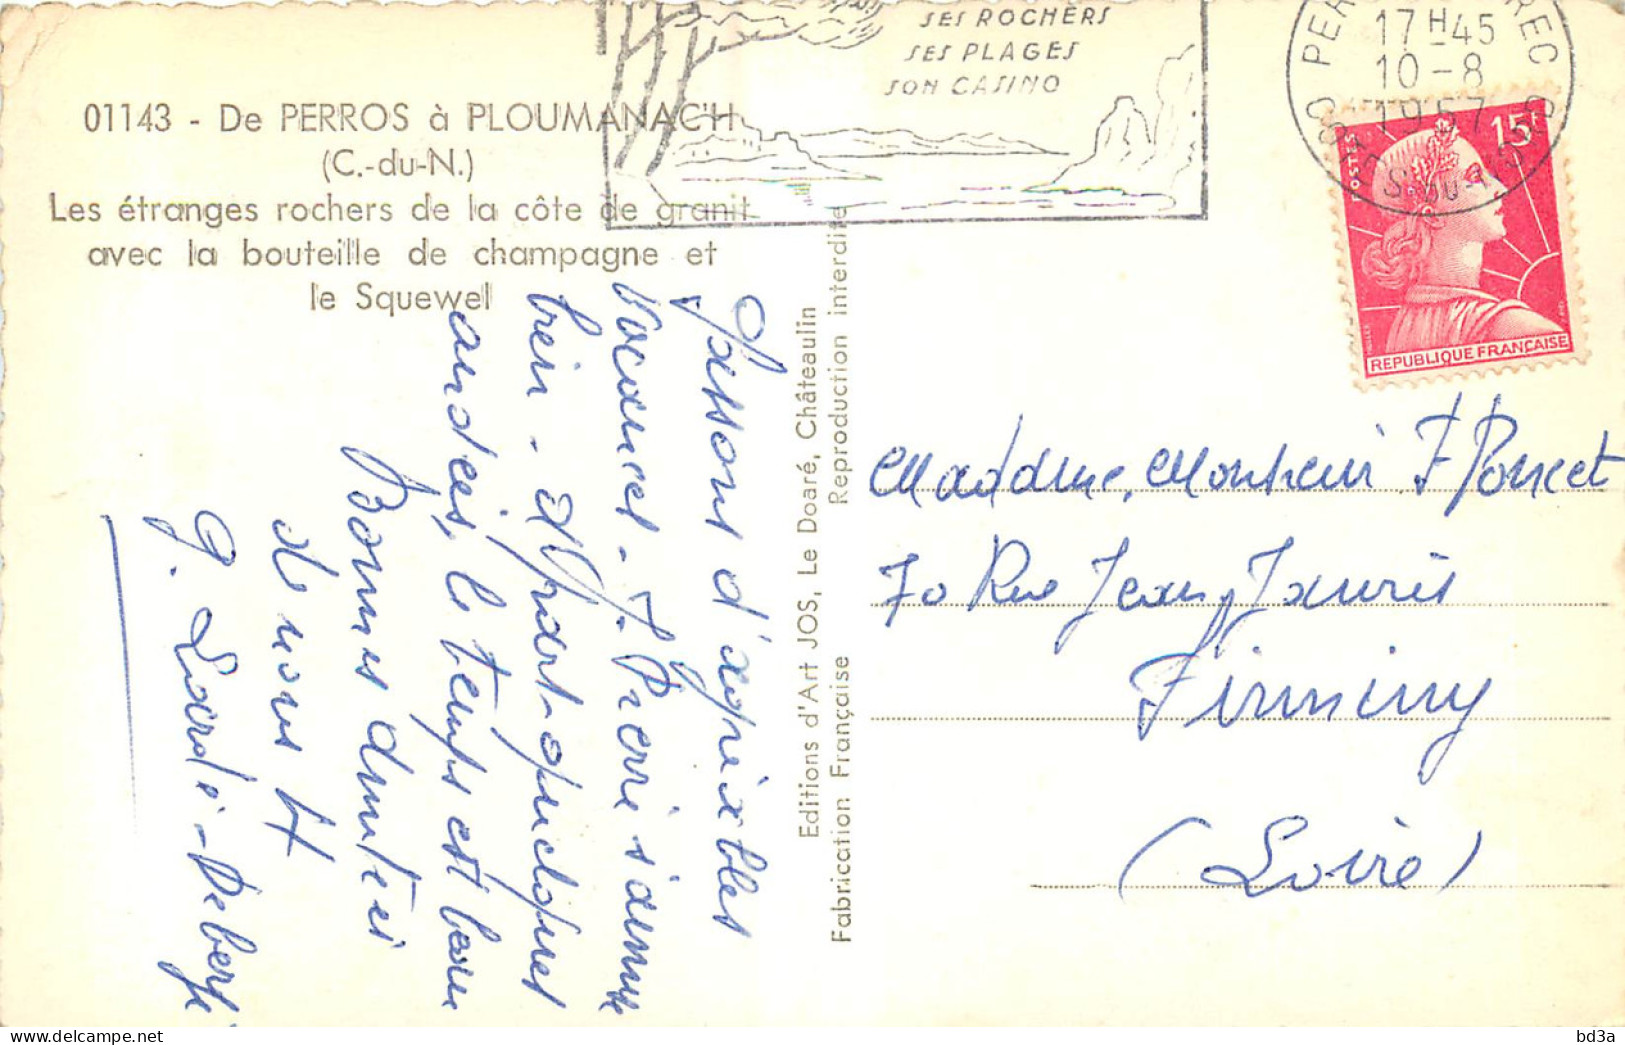 SES ROCHERS
SES PLAGES
SON CASINO
17H45
10-8
1957
01143 - De PERROS à PLOUMANAC'H
(C.-du-N.)
Les étranges rochers de la côte de granit
avec la bouteille de champagne et
le Squewel
15F
POSTES
REPUBLIQUE FRANÇAISE
Passons d'agréables
Vacances - J. Pierre s'amuse
bien - à part quelques
andées, le temps est beau
Bonnes amitiés
de nous 4
G. Lardi-
Editions d'Art JOS, Le Doaré, Châteaulin
Fabrication Française Reproduction interdite
Madame, Monsieur F Poncet
70 Rue Jean Jaurès
Firminy
(Loire)
bd3a